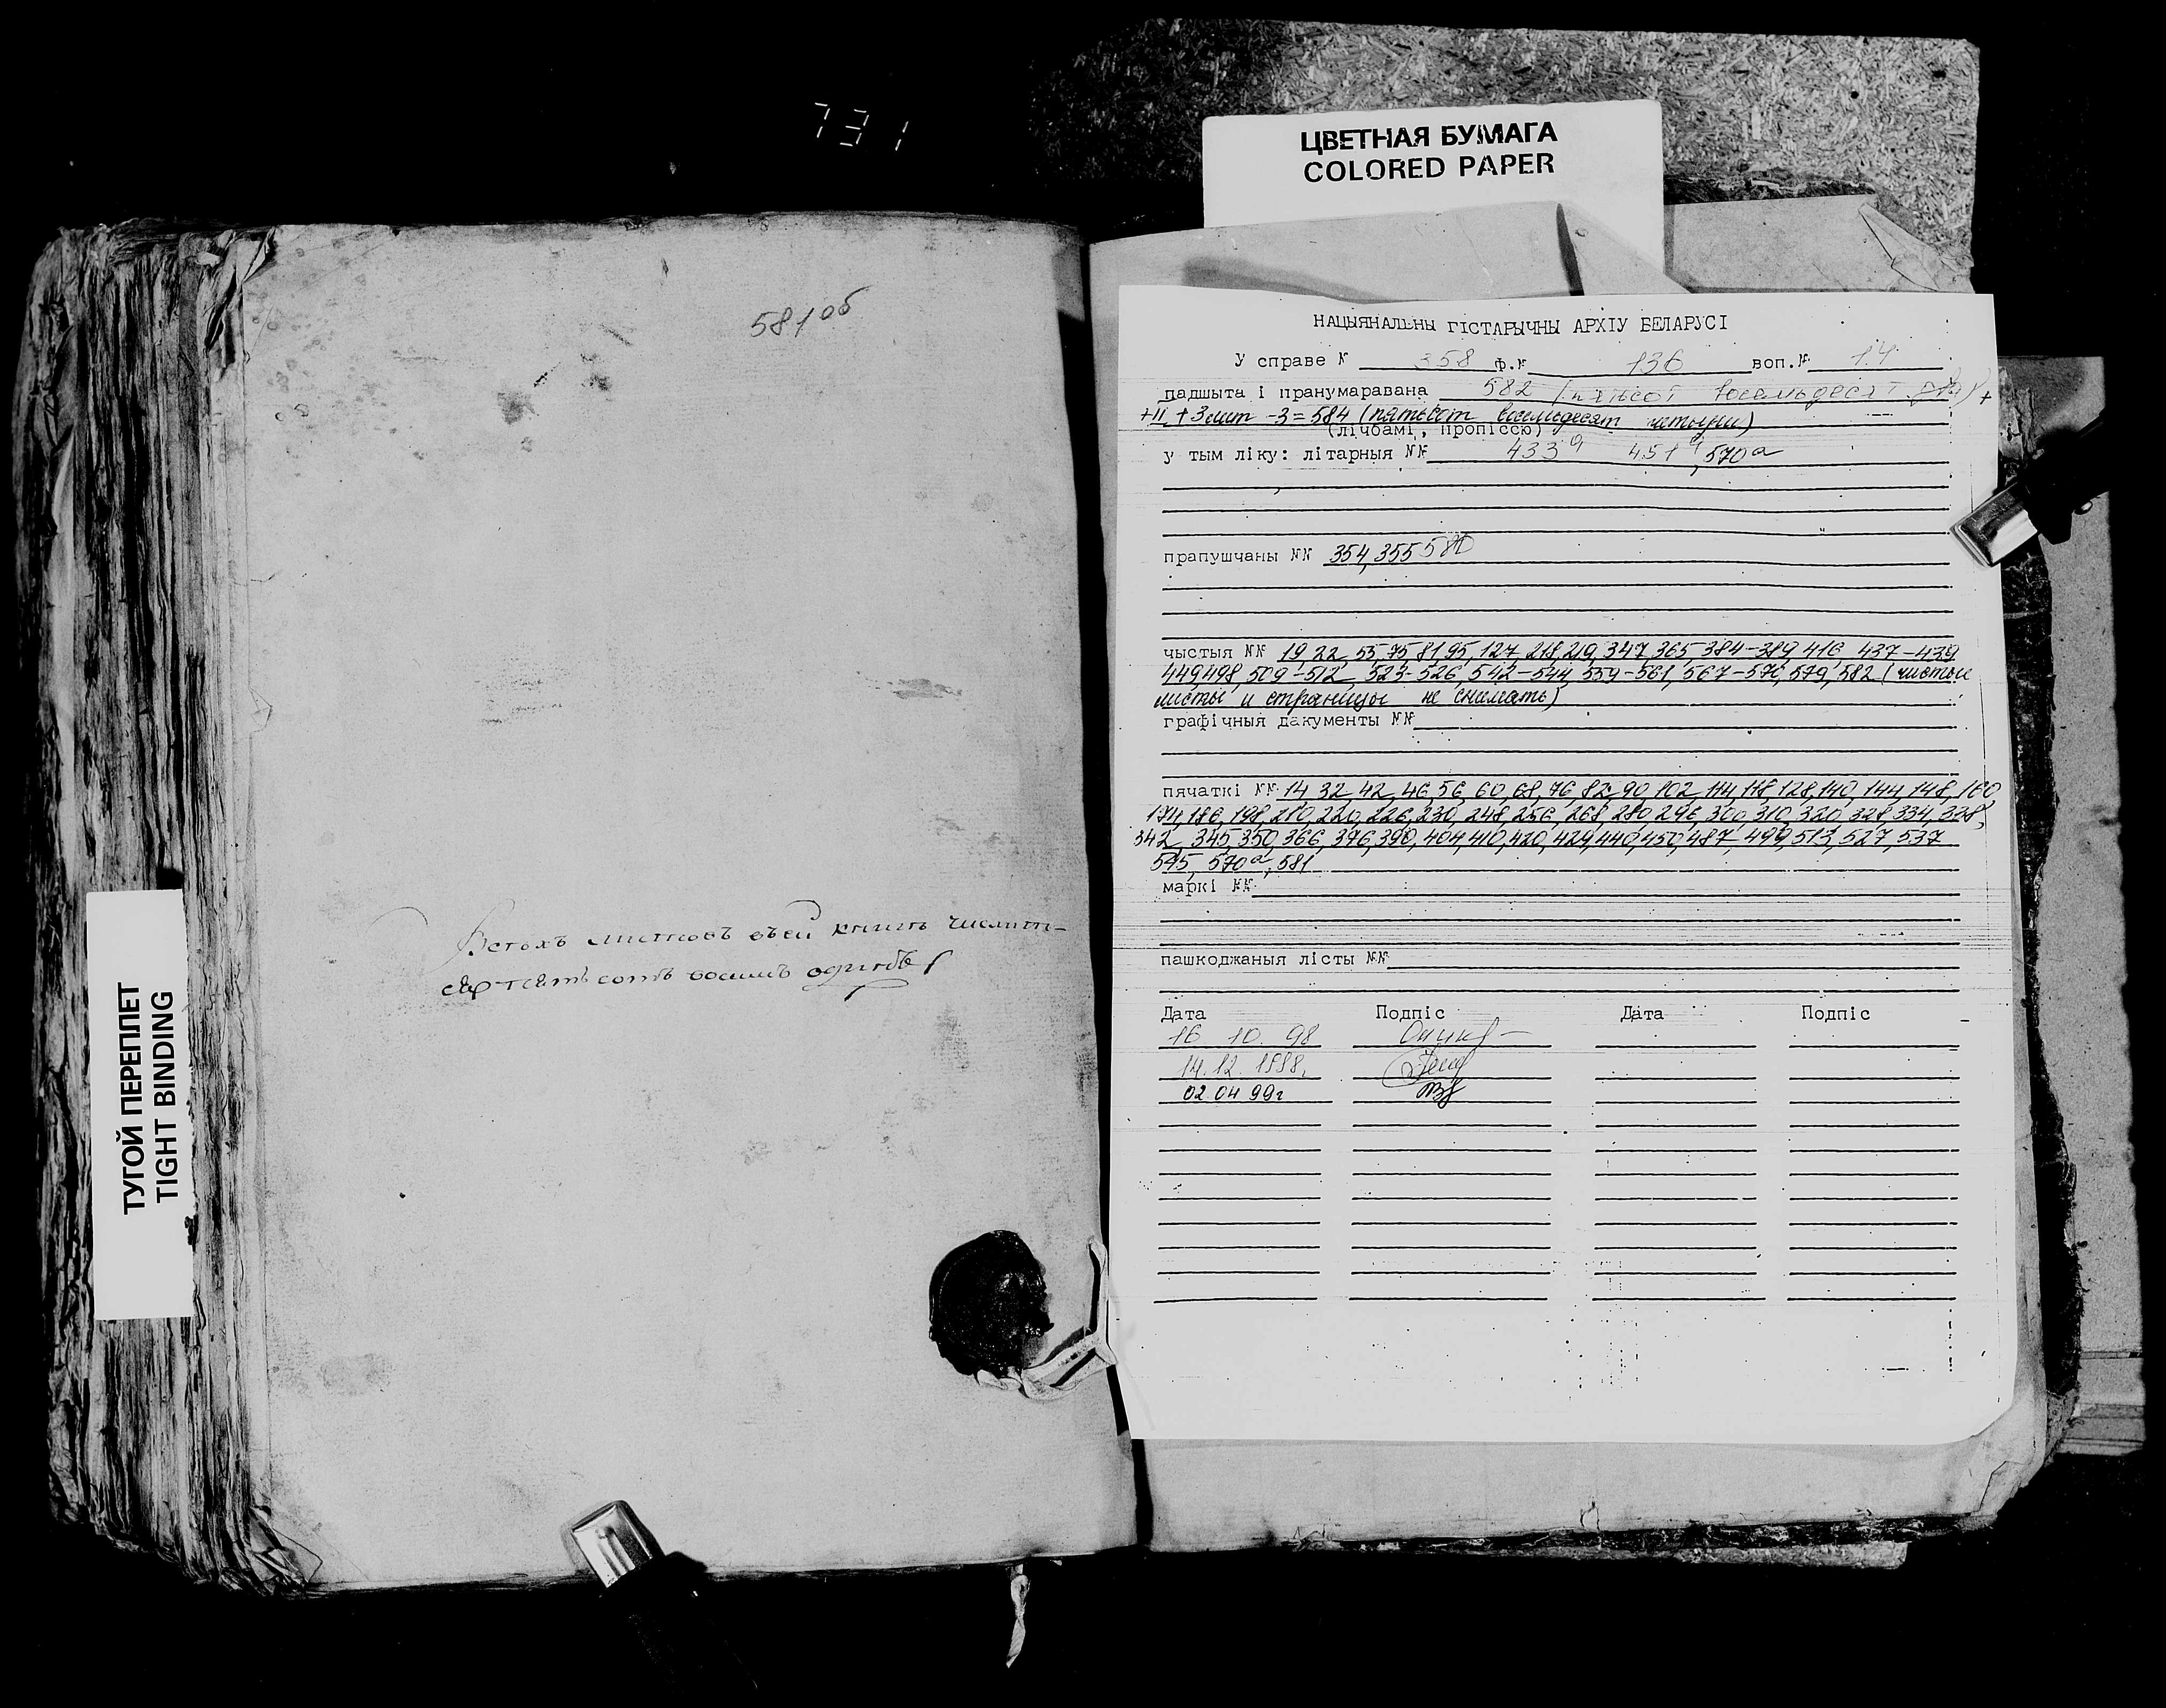 731
ЦВЕТНАЯ БУМАГА
COLORED PAPER
581об
Всехъ листовъ въ сей книги числит-
ся пять сотъ восимъ
ТУГОЙ ПЕРЕПЛЕТ
TIGHT BINDING
НАЦЫЯНАЛЬНЫ ГІСТАРЫЧНЫ АРХІУ БЕЛАРУСІ
У справе № 358 ф.№ 136 воп.№ 14
падшыта і пранумаравана 582 (пяцьсот восемьдесят два) +
+II + 3 лит - 3 = 584 (пятьсот восемьдесят четыре)
(лічбамі, пропіссю)
у тым ліку: літарныя №№ 433а 451а, 570а
прапушчаны №№ 354, 355 580
чыстыя №№ 19, 22, 55, 75, 81, 95, 127, 218, 219, 347, 365, 384-389, 416, 437-439
449, 498, 509-512, 523-526, 542-544, 559-561, 567-570, 579, 582 (чистые
листы и страницы не снимать)
графічныя дакументы №№
пячаткі №№ 14, 32, 42, 46, 56, 60, 68, 76, 82, 90, 102, 114, 118, 128, 140, 144, 148, 160
174, 186, 198, 210, 220, 226, 230, 248, 256, 268, 280, 296, 300, 310, 320, 328, 334, 338,
342, 345, 350, 366, 376, 390, 404, 410, 420, 424, 440, 450, 487, 499, 513, 527, 537
545, 570а, 581
маркі №№
пашкоджаныя лісты №№
Дата Подпіс Дата Подпіс
16 10. 98
14.12. 1998.
02 04 99г